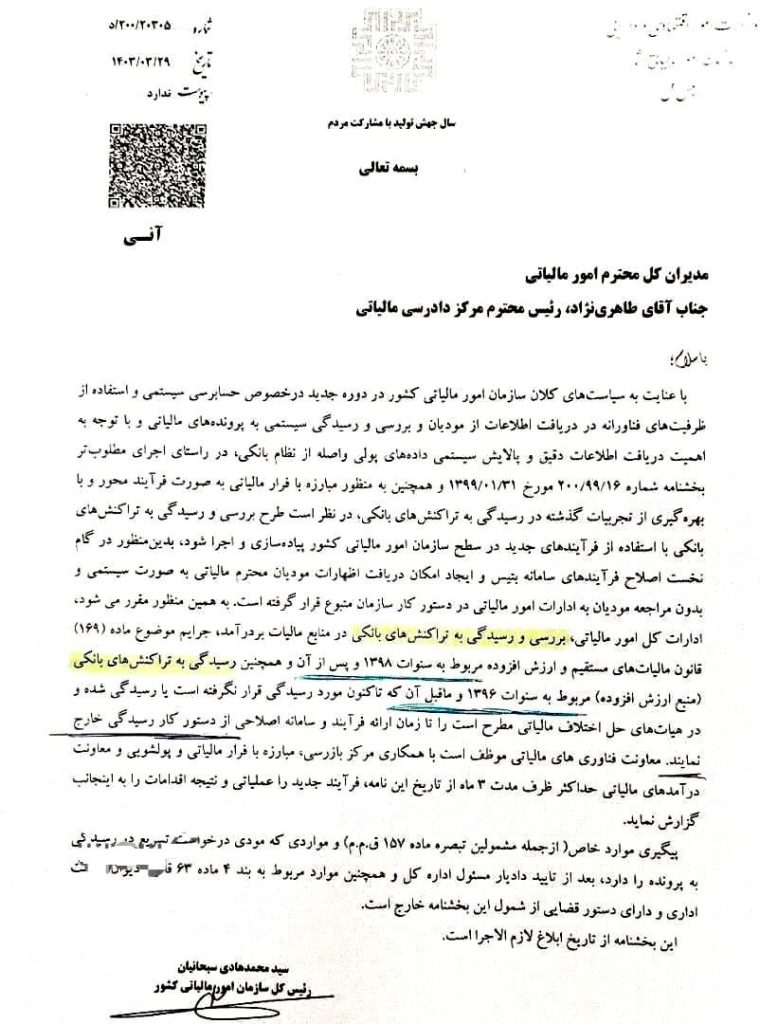 شماره ۲۰۰/۲۰۳۰۵/د
تاریخ ۱۴۰۳/۰۳/۲۹
پیوست ندارد
سال جهش تولید با مشارکت مردم
بسمه تعالی
آنــی
مدیران کل محترم امور مالیاتی
جناب آقای طاهری‌نژاد، رئیس محترم مرکز دادرسی مالیاتی
با سلام؛
با عنایت به سیاست‌های کلان سازمان امور مالیاتی کشور در دوره جدید درخصوص حسابرسی سیستمی و استفاده از
ظرفیت‌های فناورانه در دریافت اطلاعات از مودیان و بررسی و رسیدگی سیستمی به پرونده‌های مالیاتی و با توجه به
اهمیت دریافت اطلاعات دقیق و پالایش سیستمی داده‌های پولی واصله از نظام بانکی، در راستای اجرای مطلوب‌تر
بخشنامه شماره ۲۰۰/۹۹/۱۶ مورخ ۱۳۹۹/۰۱/۳۱ و همچنین به منظور مبارزه با فرار مالیاتی به صورت فرآیند محور و با
بهره‌گیری از تجربیات گذشته در رسیدگی به تراکنش‌های بانکی، در نظر است طرح بررسی و رسیدگی به تراکنش‌های
بانکی با استفاده از فرآیندهای جدید در سطح سازمان امور مالیاتی کشور پیاده‌سازی و اجرا شود، بدین‌منظور در گام
نخست اصلاح فرآیندهای سامانه بتیس و ایجاد امکان دریافت اظهارات مودیان محترم مالیاتی به صورت سیستمی و
بدون مراجعه مودیان به ادارات امور مالیاتی در دستور کار سازمان متبوع قرار گرفته است. به همین منظور مقرر می شود،
ادارات کل امور مالیاتی، بررسی و رسیدگی به تراکنش‌های بانکی در منابع مالیات بردرآمد، جرایم موضوع ماده (۱۶۹)
قانون مالیات‌های مستقیم و ارزش افزوده مربوط به سنوات ۱۳۹۸ و پس از آن و همچنین رسیدگی به تراکنش‌های بانکی
(منبع ارزش افزوده) مربوط به سنوات ۱۳۹۶ و ماقبل آن که تاکنون مورد رسیدگی قرار نگرفته است یا رسیدگی شده و
در هیات‌های حل اختلاف مالیاتی مطرح است را تا زمان ارائه فرآیند و سامانه اصلاحی از دستور کار رسیدگی خارج
نمایند. معاونت فناوری های مالیاتی موظف است با همکاری مرکز بازرسی، مبارزه با فرار مالیاتی و پولشویی و معاونت
درآمدهای مالیاتی حداکثر ظرف مدت ۳ ماه از تاریخ این نامه، فرآیند جدید را عملیاتی و نتیجه اقدامات را به اینجانب
گزارش نماید.
پیگیری موارد خاص( ازجمله مشمولین تبصره ماده ۱۵۷ ق.م.م) و مواردی که مودی درخواست تسریع در رسیدگی
به پرونده را دارد، بعد از تایید دادیار مسئول اداره کل و همچنین موارد مربوط به بند ۴ ماده ۶۳
اداری و دارای دستور قضایی از شمول این بخشنامه خارج است.
این بخشنامه از تاریخ ابلاغ لازم الاجرا است.
سید محمدهادی سبحانیان
رئیس کل سازمان امور مالیاتی کشور